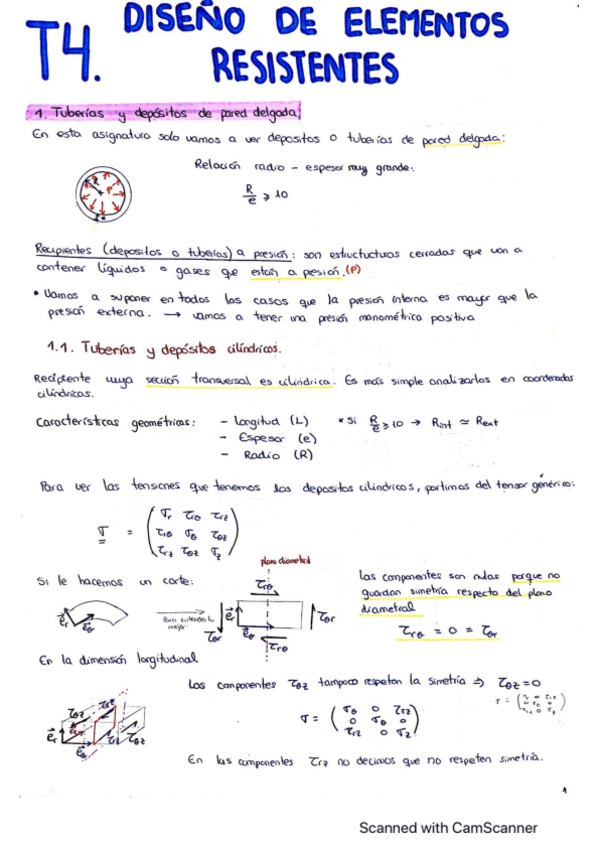 T4. DISEÑO DE ELEMENTOS
RESISTENTES
1. Tuberías y depósitos de pared delgada
En esta asignatura solo vamos a ver depositos o tuberías de pared delgada:
Relación radio - espesor muy grande:
R/e ≥ 10
Recipientes (depositos o tuberías) a presión: son estructucturas cerradas que van a
contener líquidos o gases que están a presión. (P)
• Vamos a suponer en todos los casos que la presión interna es mayor que la
presión externa. → vamos a tener una presión manométrica positiva
1.1. Tuberías y depósitos cilíndricos.
Recipiente cuya sección transversal es cilindrica. Es más simple analizarlos en coordenadas
cilíndricas.
Características geométricas: - Longitud (L) * Si R/e ≥ 10 → Rint ≃ Rext
- Espesor (e)
- Radio (R)
Para ver las tensiones que tenemos los depositos cilindricos, partimos del tensor genérico:
σ = ( σr τrθ τrz
τrθ σθ τθz
τrz τθz σz )
plano diametral
Si le hacemos un corte:
τrθ
Las componentes son nulas porque no
guardan simetría respecto del plano
diametral
er eθ
er eθ
τθr τθr
τrθ
τrθ = 0 = τθr
En la dimensión longitudinal
Las componentes τθz tampoco respetan la simetría ⇒ τθz = 0
τθz
er
eθ
σ = ( σθ 0 τrz
0 σθ 0
τrz 0 σz )
En las componentes τrz no decimos que no respeten simetría.
1
Scanned with CamScanner